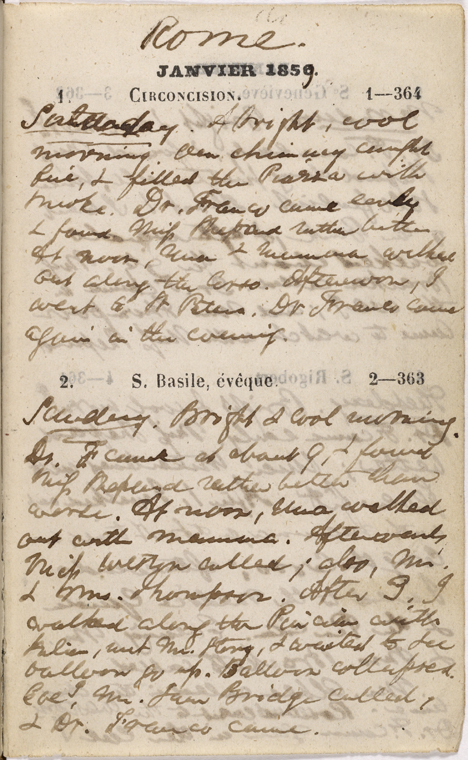 Rome.
JANVIER 1859.
1. CIRCONCISION. 1—364
Saturday. A bright, cool
morning. Our chimney caught
fire, & filled the Piazza with
smoke. Dr. Franco came early
& found Miss Shepard rather better.
At noon, Una & mamma walked
out along the Corso. Afternoon, I
went to St Peters. Dr. Franco came
again in the evening.
2. S. Basile, évêque. 2—363
Sunday. Bright & cool morning.
Dr. F came at about 9, & found
Miss Shepard rather better than
worse. At noon, Una walked
out with mamma. Afterwards,
Miss called; also, Mr.
& Mrs. Thompson. After 3, I
walked along the Pincian with
Julian, met Mr. Story, & waited to see
balloon go up. Balloon collapsed.
Eveg, Mr. Bridge called,
& Dr. Franco came.